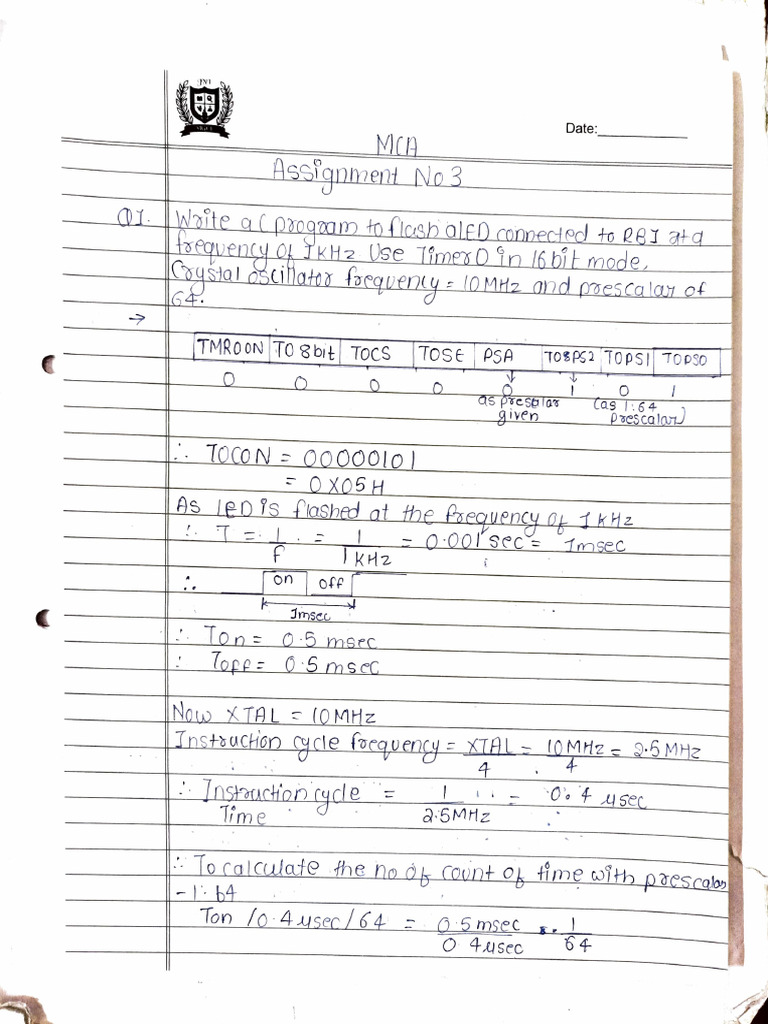 Date:
MCA
Assignment No 3
Q1. Write a C program to flash a LED connected to RB1 at a
frequency of 1KHz Use Timer0 in 16 bit mode,
Crystal oscillator frequency = 10MHz and prescalar of
64.
→
TMROON TO 8bit TOCS TOSE PSA TO8PS2 TOPS1 TOPS0
0 0 0 0 0 1 0 1
as prescalar given (as 1:64 prescalar)
∴ TOCON = 00000101
= 0X05H
As LED is flashed at the frequency of 1KHz
∴ T = 1/f = 1/1KHz = 0.001 sec = 1msec
∴ on off
1msec
∴ Ton = 0.5 msec
∴ Toff = 0.5 msec
Now XTAL = 10MHz
Instruction cycle frequency = XTAL/4 = 10MHz/4 = 2.5MHz
∴ Instruction cycle Time = 1/2.5MHz = 0.4 μsec
∴ To calculate the no of count of time with prescalar
- 1:64
Ton / 0.4 μsec / 64 = 0.5msec/0.4μsec . 1/64